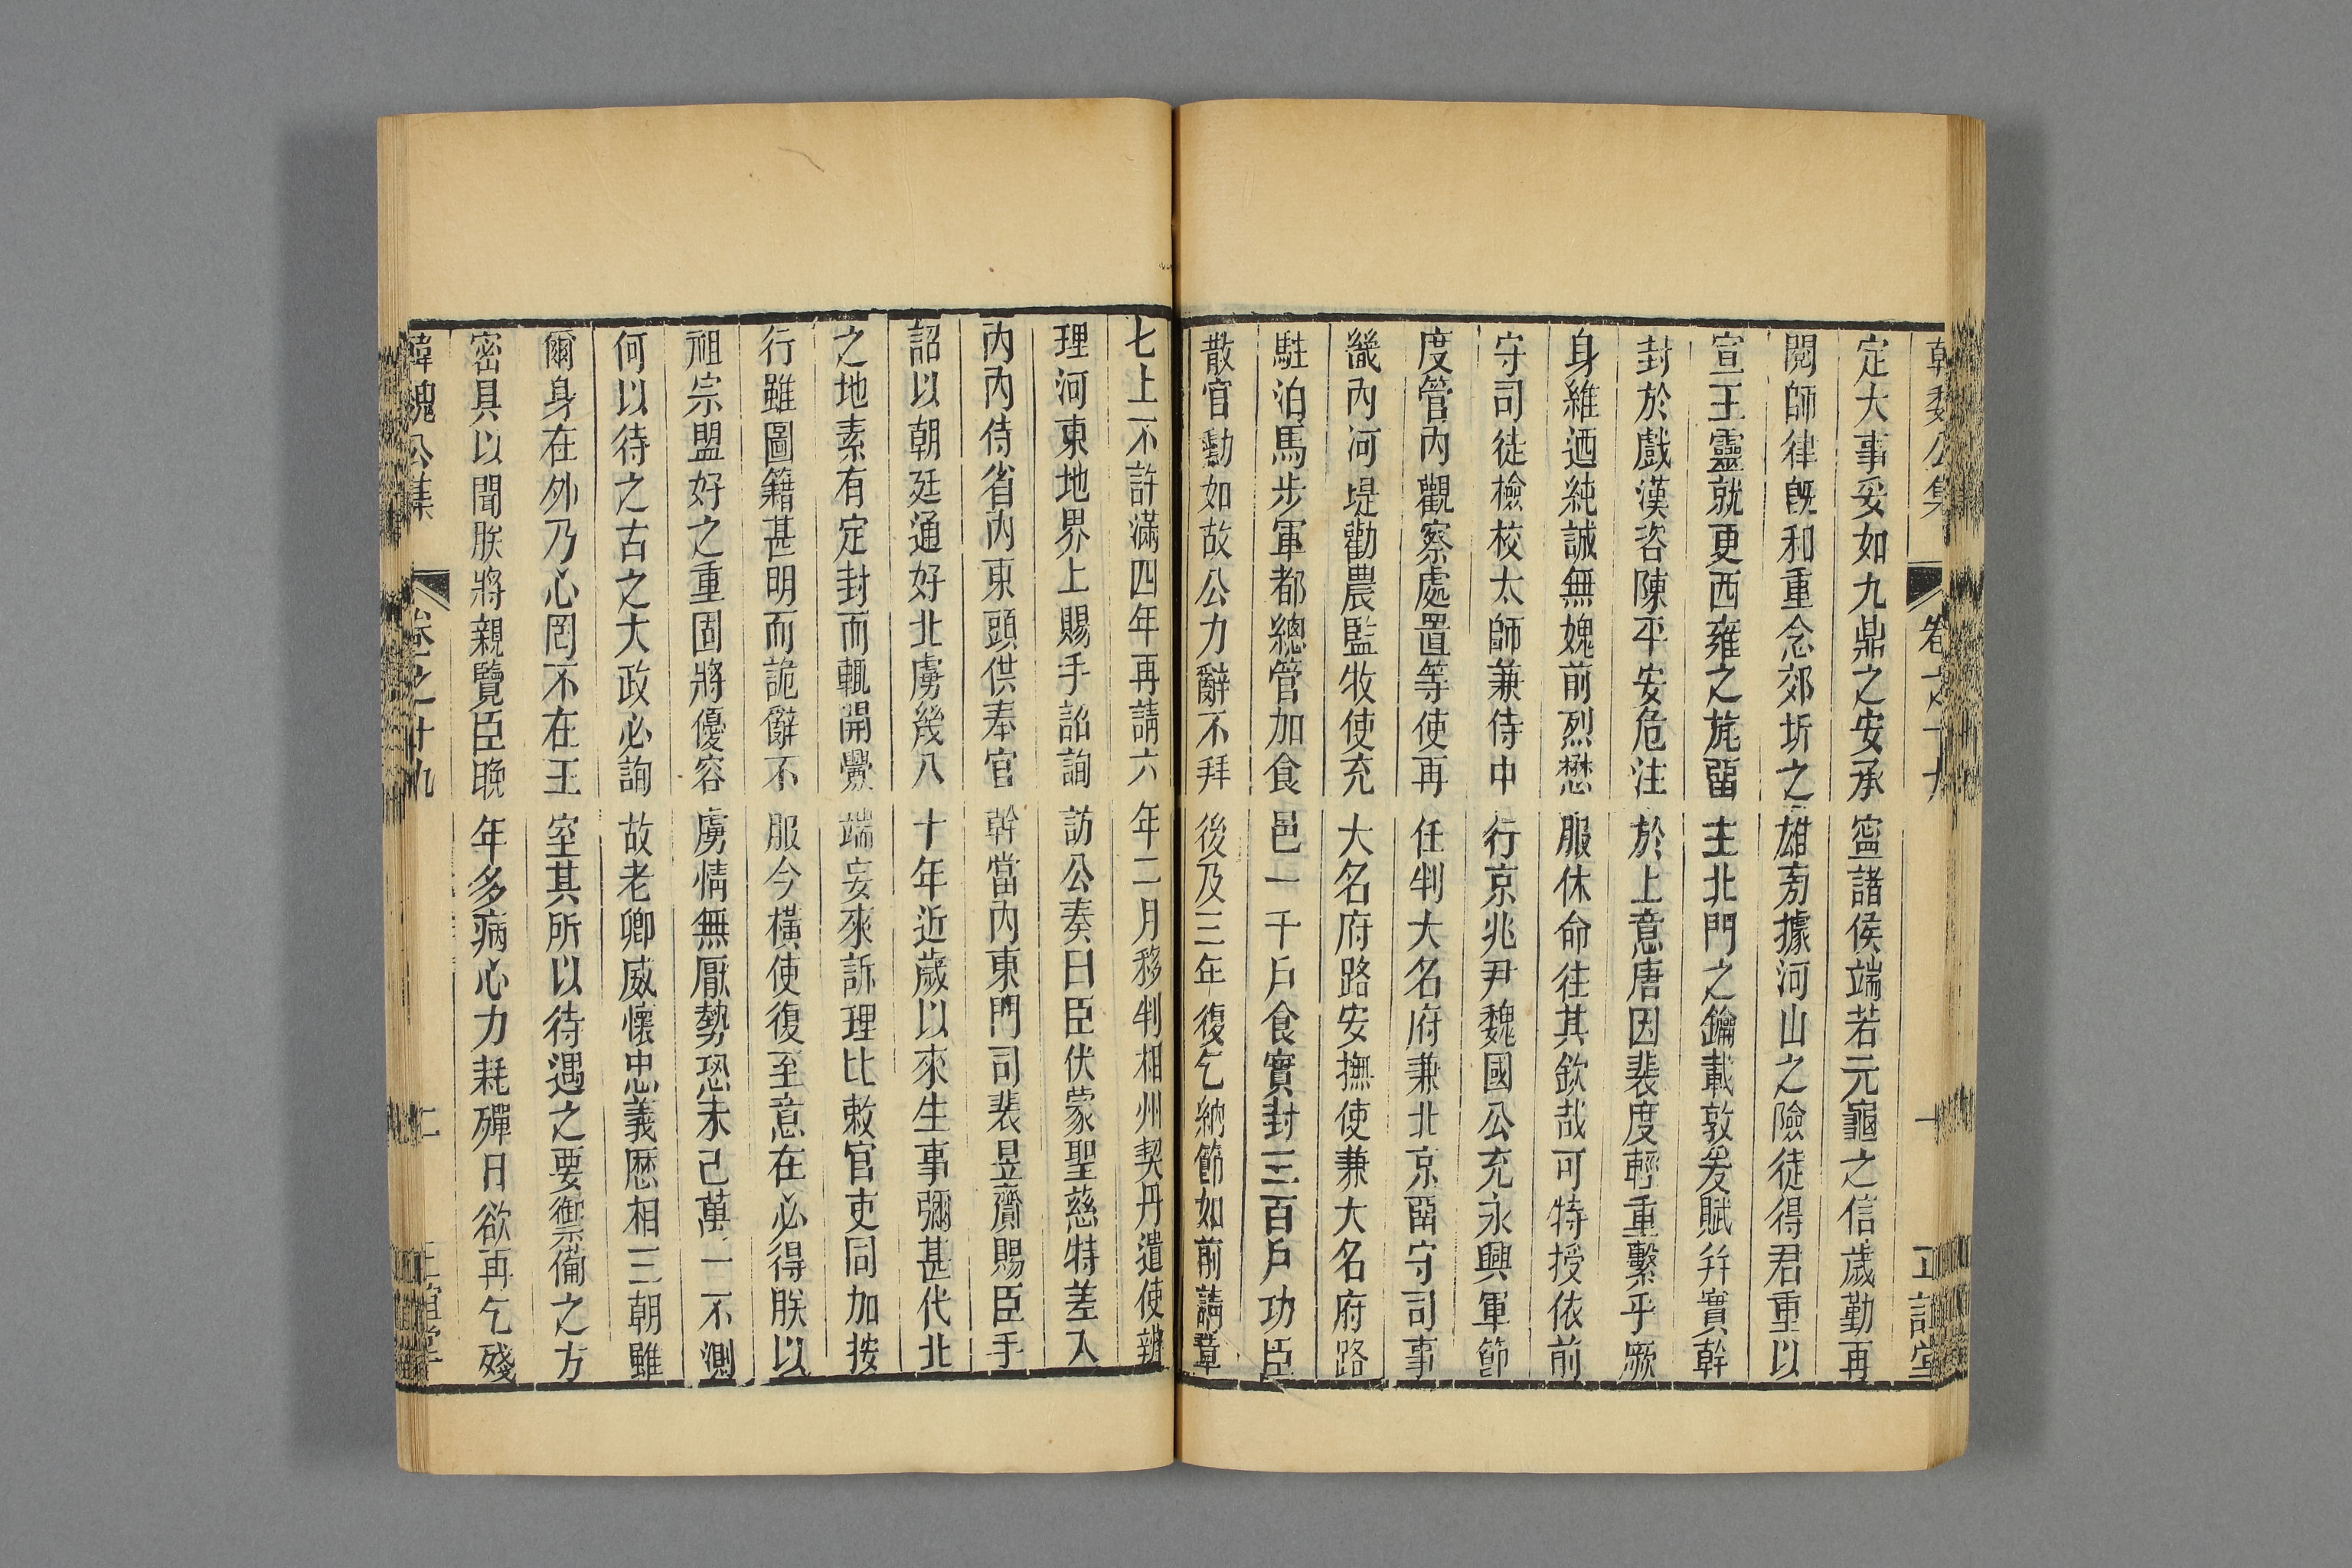 韓魏公集 卷之十九 一 正誼堂
定大事妥如九鼎之安承寧諸侯端若元龜之信歲勤再
閱師律旣和重念郊圻之雄旁據河山之險徒得君重以
宣王靈就更西雍之旄留主北門之鑰載敦爰賦幷實幹
封於戲漢咨陳平安危注於上意唐因裴度輕重繫乎厥
身維迺純誠無媿前烈懋服休命往其欽哉可特授依前
守司徒檢校太師兼侍中行京兆尹魏國公充永興軍節
度管內觀察處置等使再任判大名府兼北京留守司事
畿內河堤勸農監牧使充大名府路安撫使兼大名府路
駐泊馬步軍都總管加食邑一千戶食實封三百戶功臣
散官勳如故公力辭不拜後及三年復乞納節如前請章
七上不許滿四年再請六年二月移判相州契丹遣使辨
理河東地界上賜手詔詢訪公奏曰臣伏蒙聖慈特差入
內內侍省內東頭供奉官幹當內東門司裴昱齎賜臣手
詔以朝廷通好北虜幾八十年近歲以來生事彌甚代北
之地素有定封而輒開釁端妄來訴理比敕官吏同加按
行雖圖籍甚明而詭辭不服今橫使復至意在必得朕以
祖宗盟好之重固將優容虜情無厭勢恐未已萬一不測
何以待之古之大政必詢故老卿威懷忠義歷相三朝雖
爾身在外乃心罔不在王室其所以待遇之要禦備之方
密具以聞朕將親覽臣晚年多病心力耗殫日欲再乞殘
韓魏公集 卷之十九 二 正誼堂